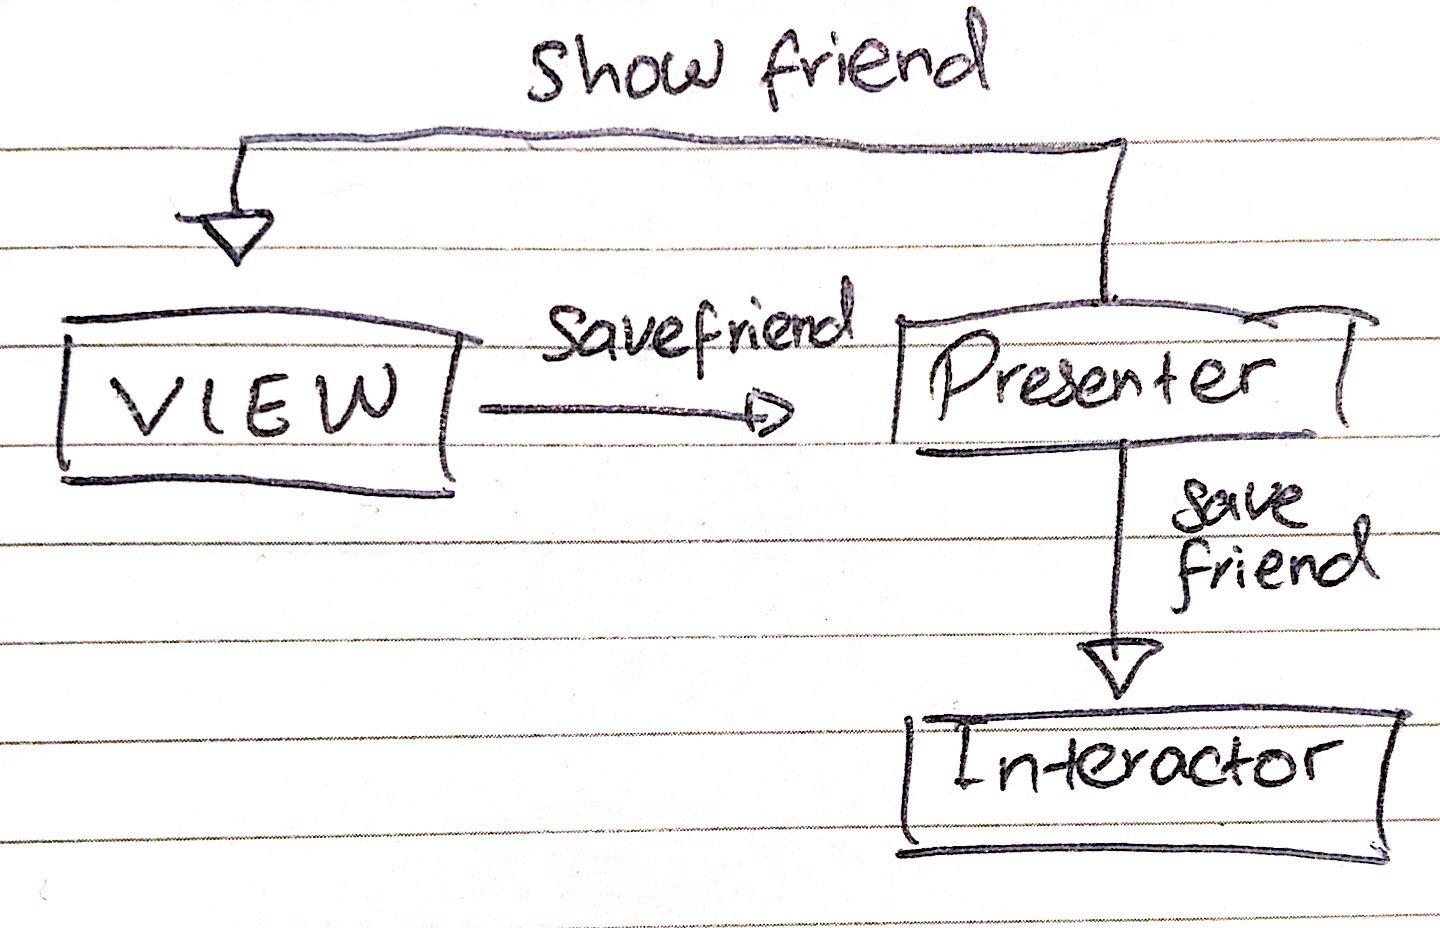 show friend
savefriend
VIEW
Presenter
save
friend
Interactor